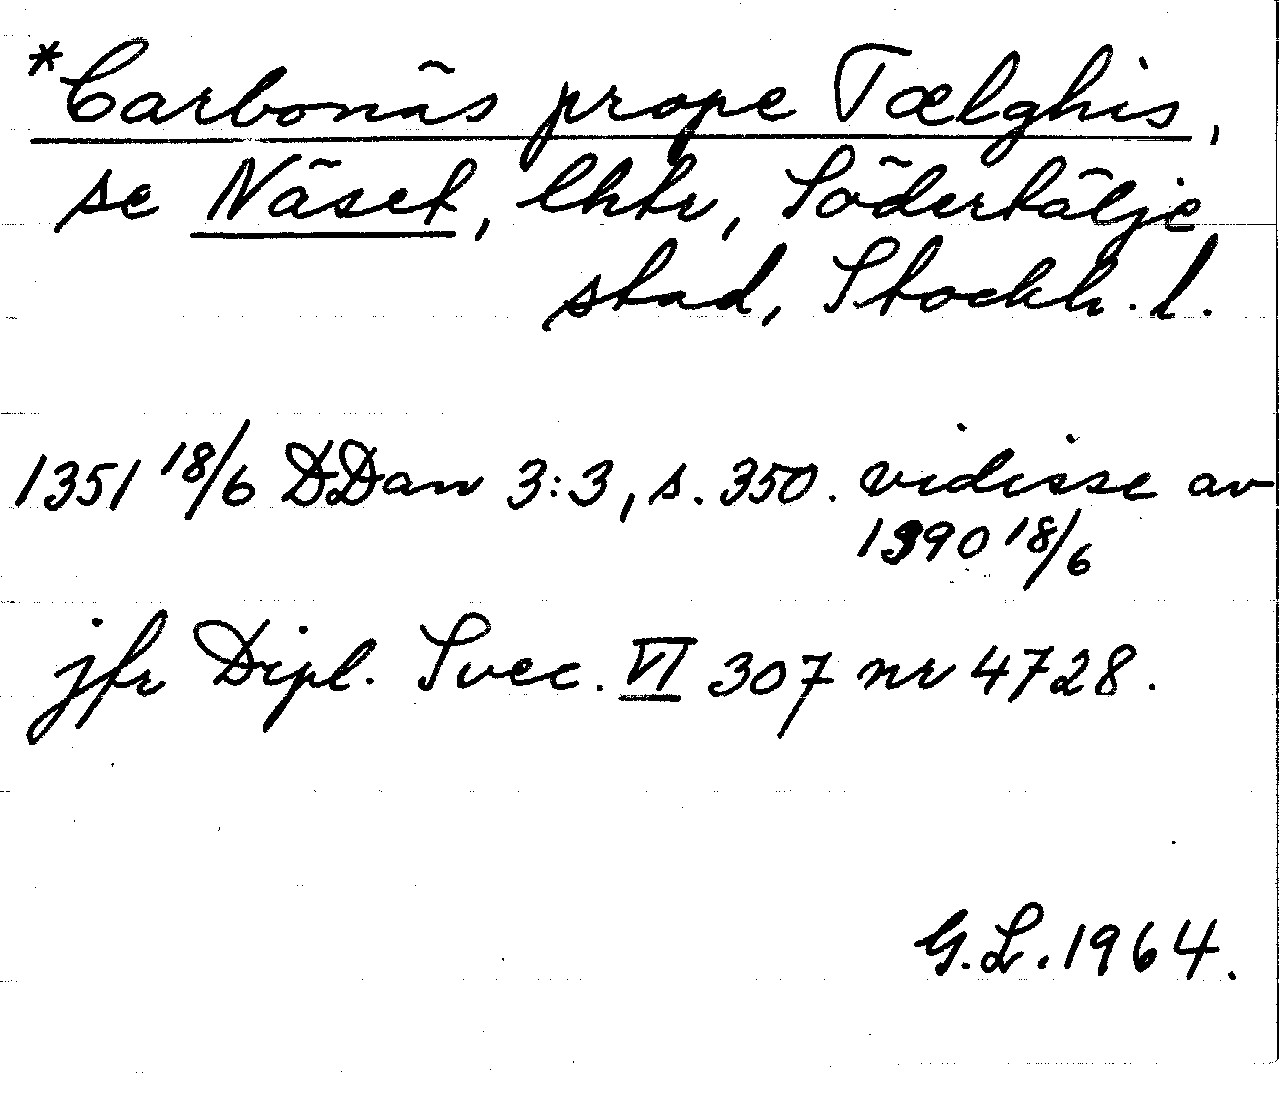 *Carbonäs prope Tælghis,
se Näset, lhtr, Södertälje
stad, Stockh. l.
1351 18/6 DDan 3:3, s. 350. vidisse av
1390 18/6
jfr Dipl. Svec. VI 307 nr 4728.
G.L. 1964.